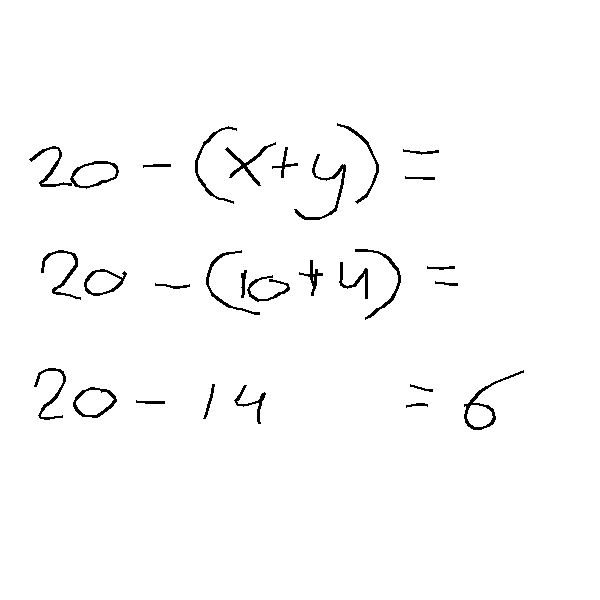 20 - (x+y) =
20 - (10+4) =
20 - 14 = 6